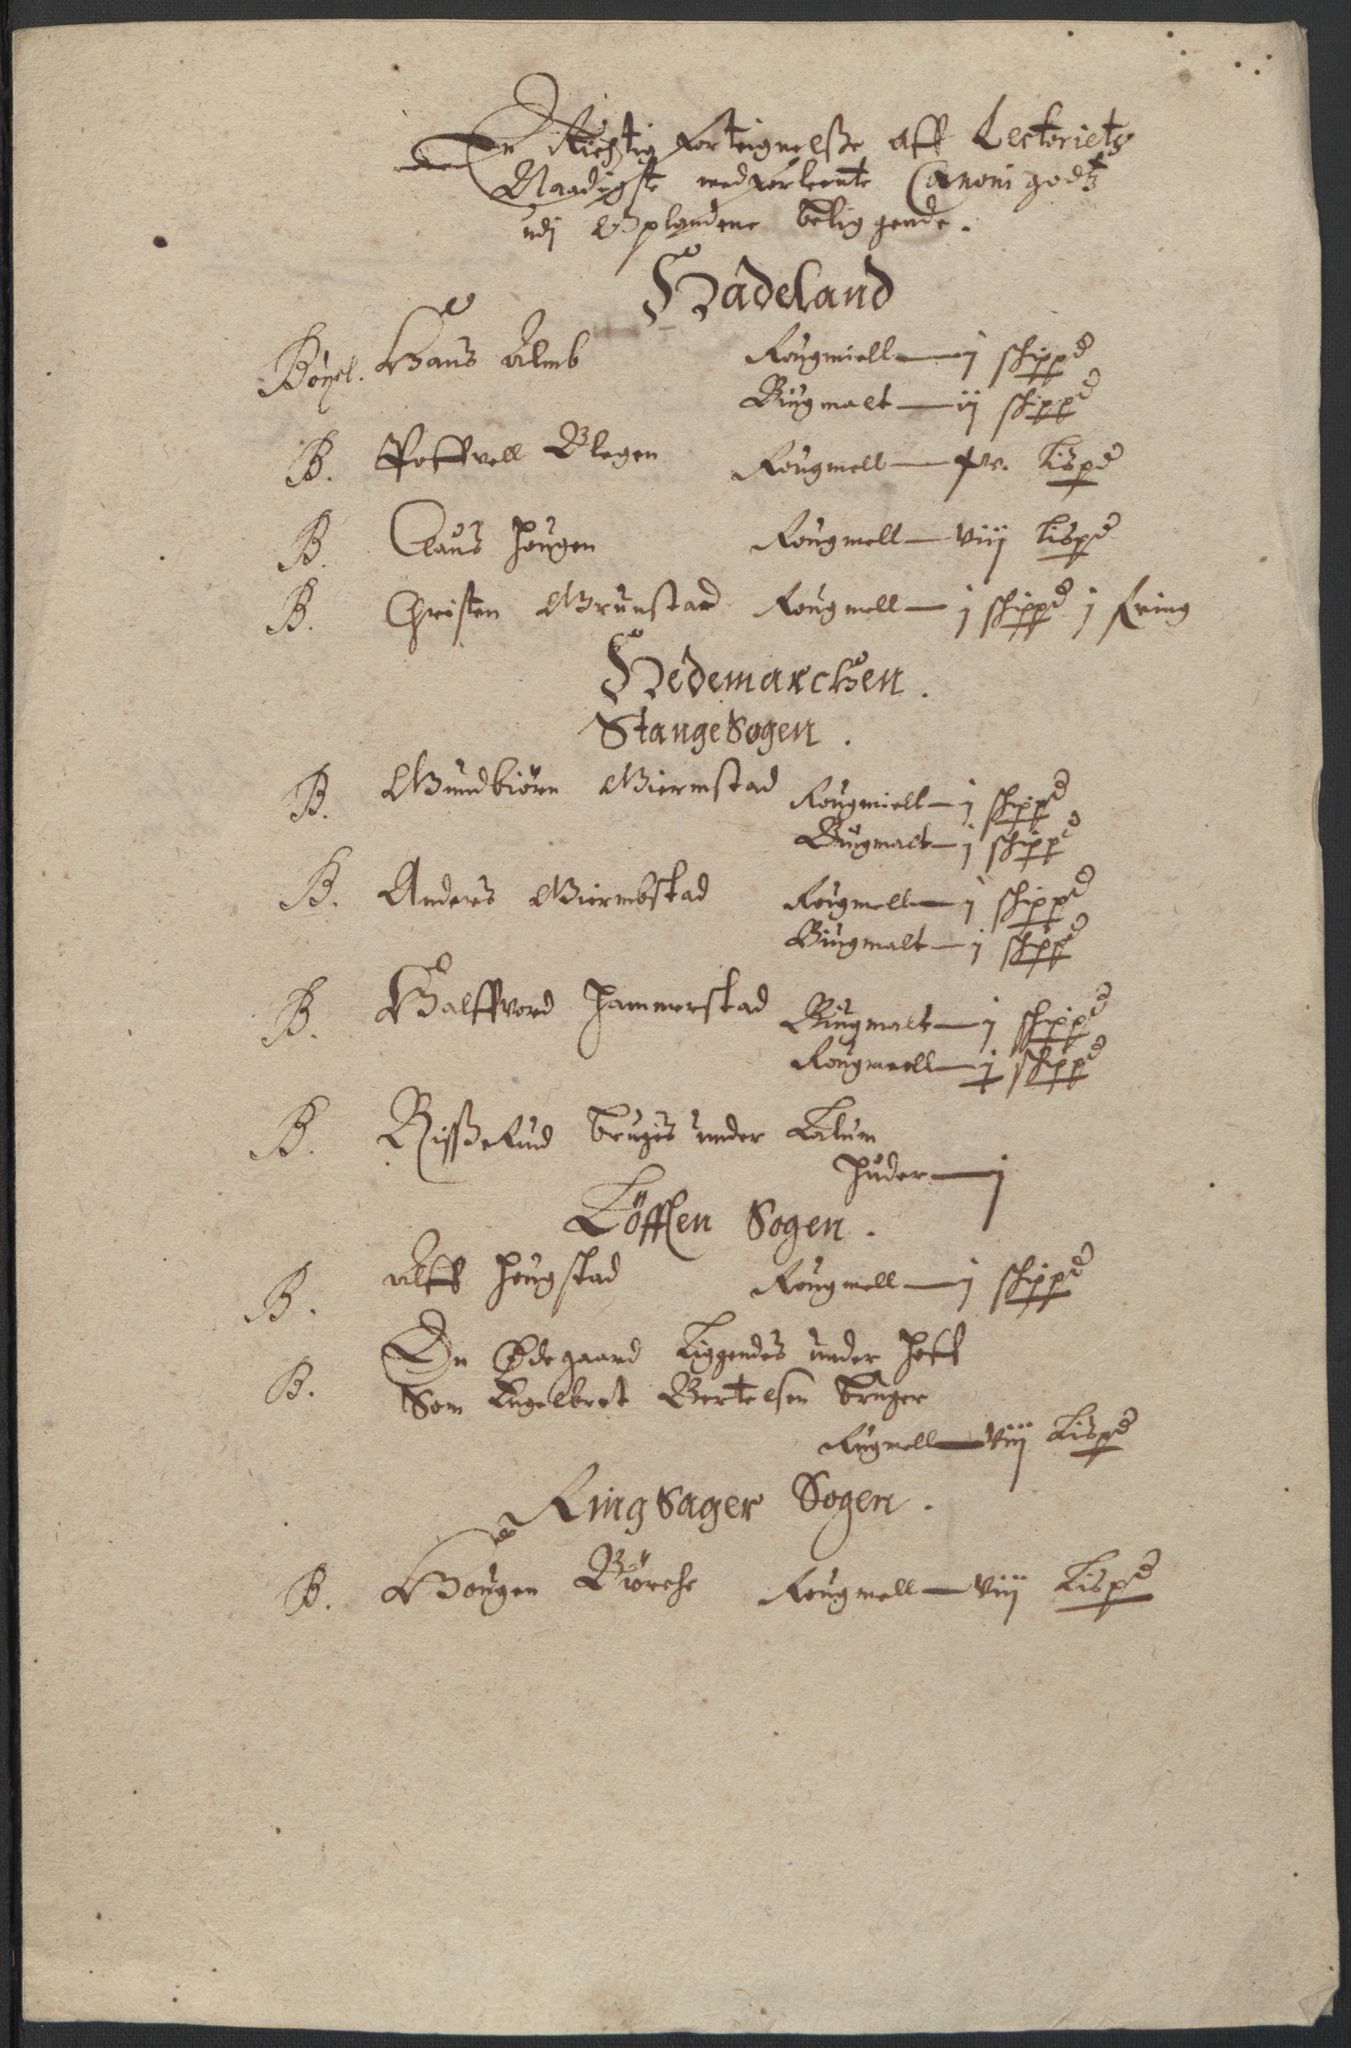 En Richtig Forteignelsse aff Lectoriets
Naadigste med forleente Canonigodtz
udj Oplandene beliggende.
Hadeland
Böxel. Hans Alm Rougmiell — j skippd
Biugmalt — ij skippd
B. Poffvell Blegen Rougmell — Lispd
B. Claus Hougen Rougmell — viij Lispd
B. Christen Grunstad Rougmell — j skippd j fring
Hedemarchen.
Stange Sogen.
B. Gundbiörn Giermstad Rougmiell — j skippd
Bugmalt — j skippd
B. Anders Giermbstad Rougmell — j skippd
Biugmalt — j skippd
B. Halffvord Hammerstad Biugmalt — j skippd
Rougmell — j skippd
B. Rissherud bruges under
Huder — j
Löffsen Sogen.
B. Alff Hougstad Rougmell — j skippd
B. En Ødegaard liggendes under Hoff
Som Engelbret Bertelsen bruger
Rugmell — viij Lispd
Ringsager Sogen.
B. Hougen Biörche Rougmell — viij Lispd